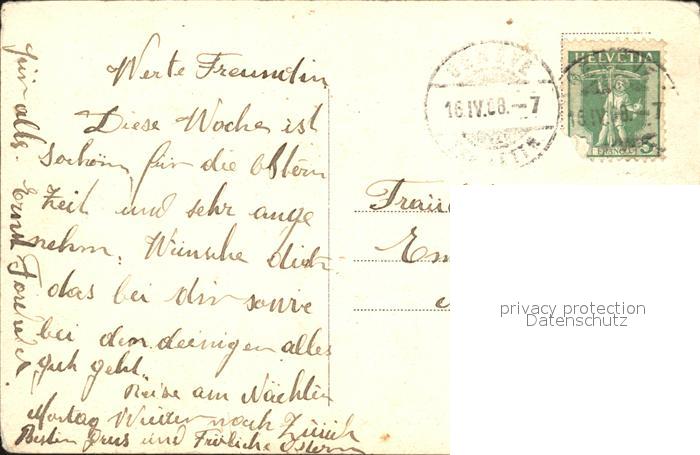 Werte Freundin
Diese Woche ist
schön für die Ostern
Zeit und sehr ange
nehm. Wünsche dich
das bei dir sowie
bei den deinigen alles
gut geht.
Reise am Nächten
Montag Wieder nach Zürich
Besten Grus und Fröliche Ostern
für alle. Ernst
GENÈVE
16.IV.08.-7
HELVETIA
16.IV.08.-7
FRANCO 5
Fräul
Em
privacy protection
Datenschutz